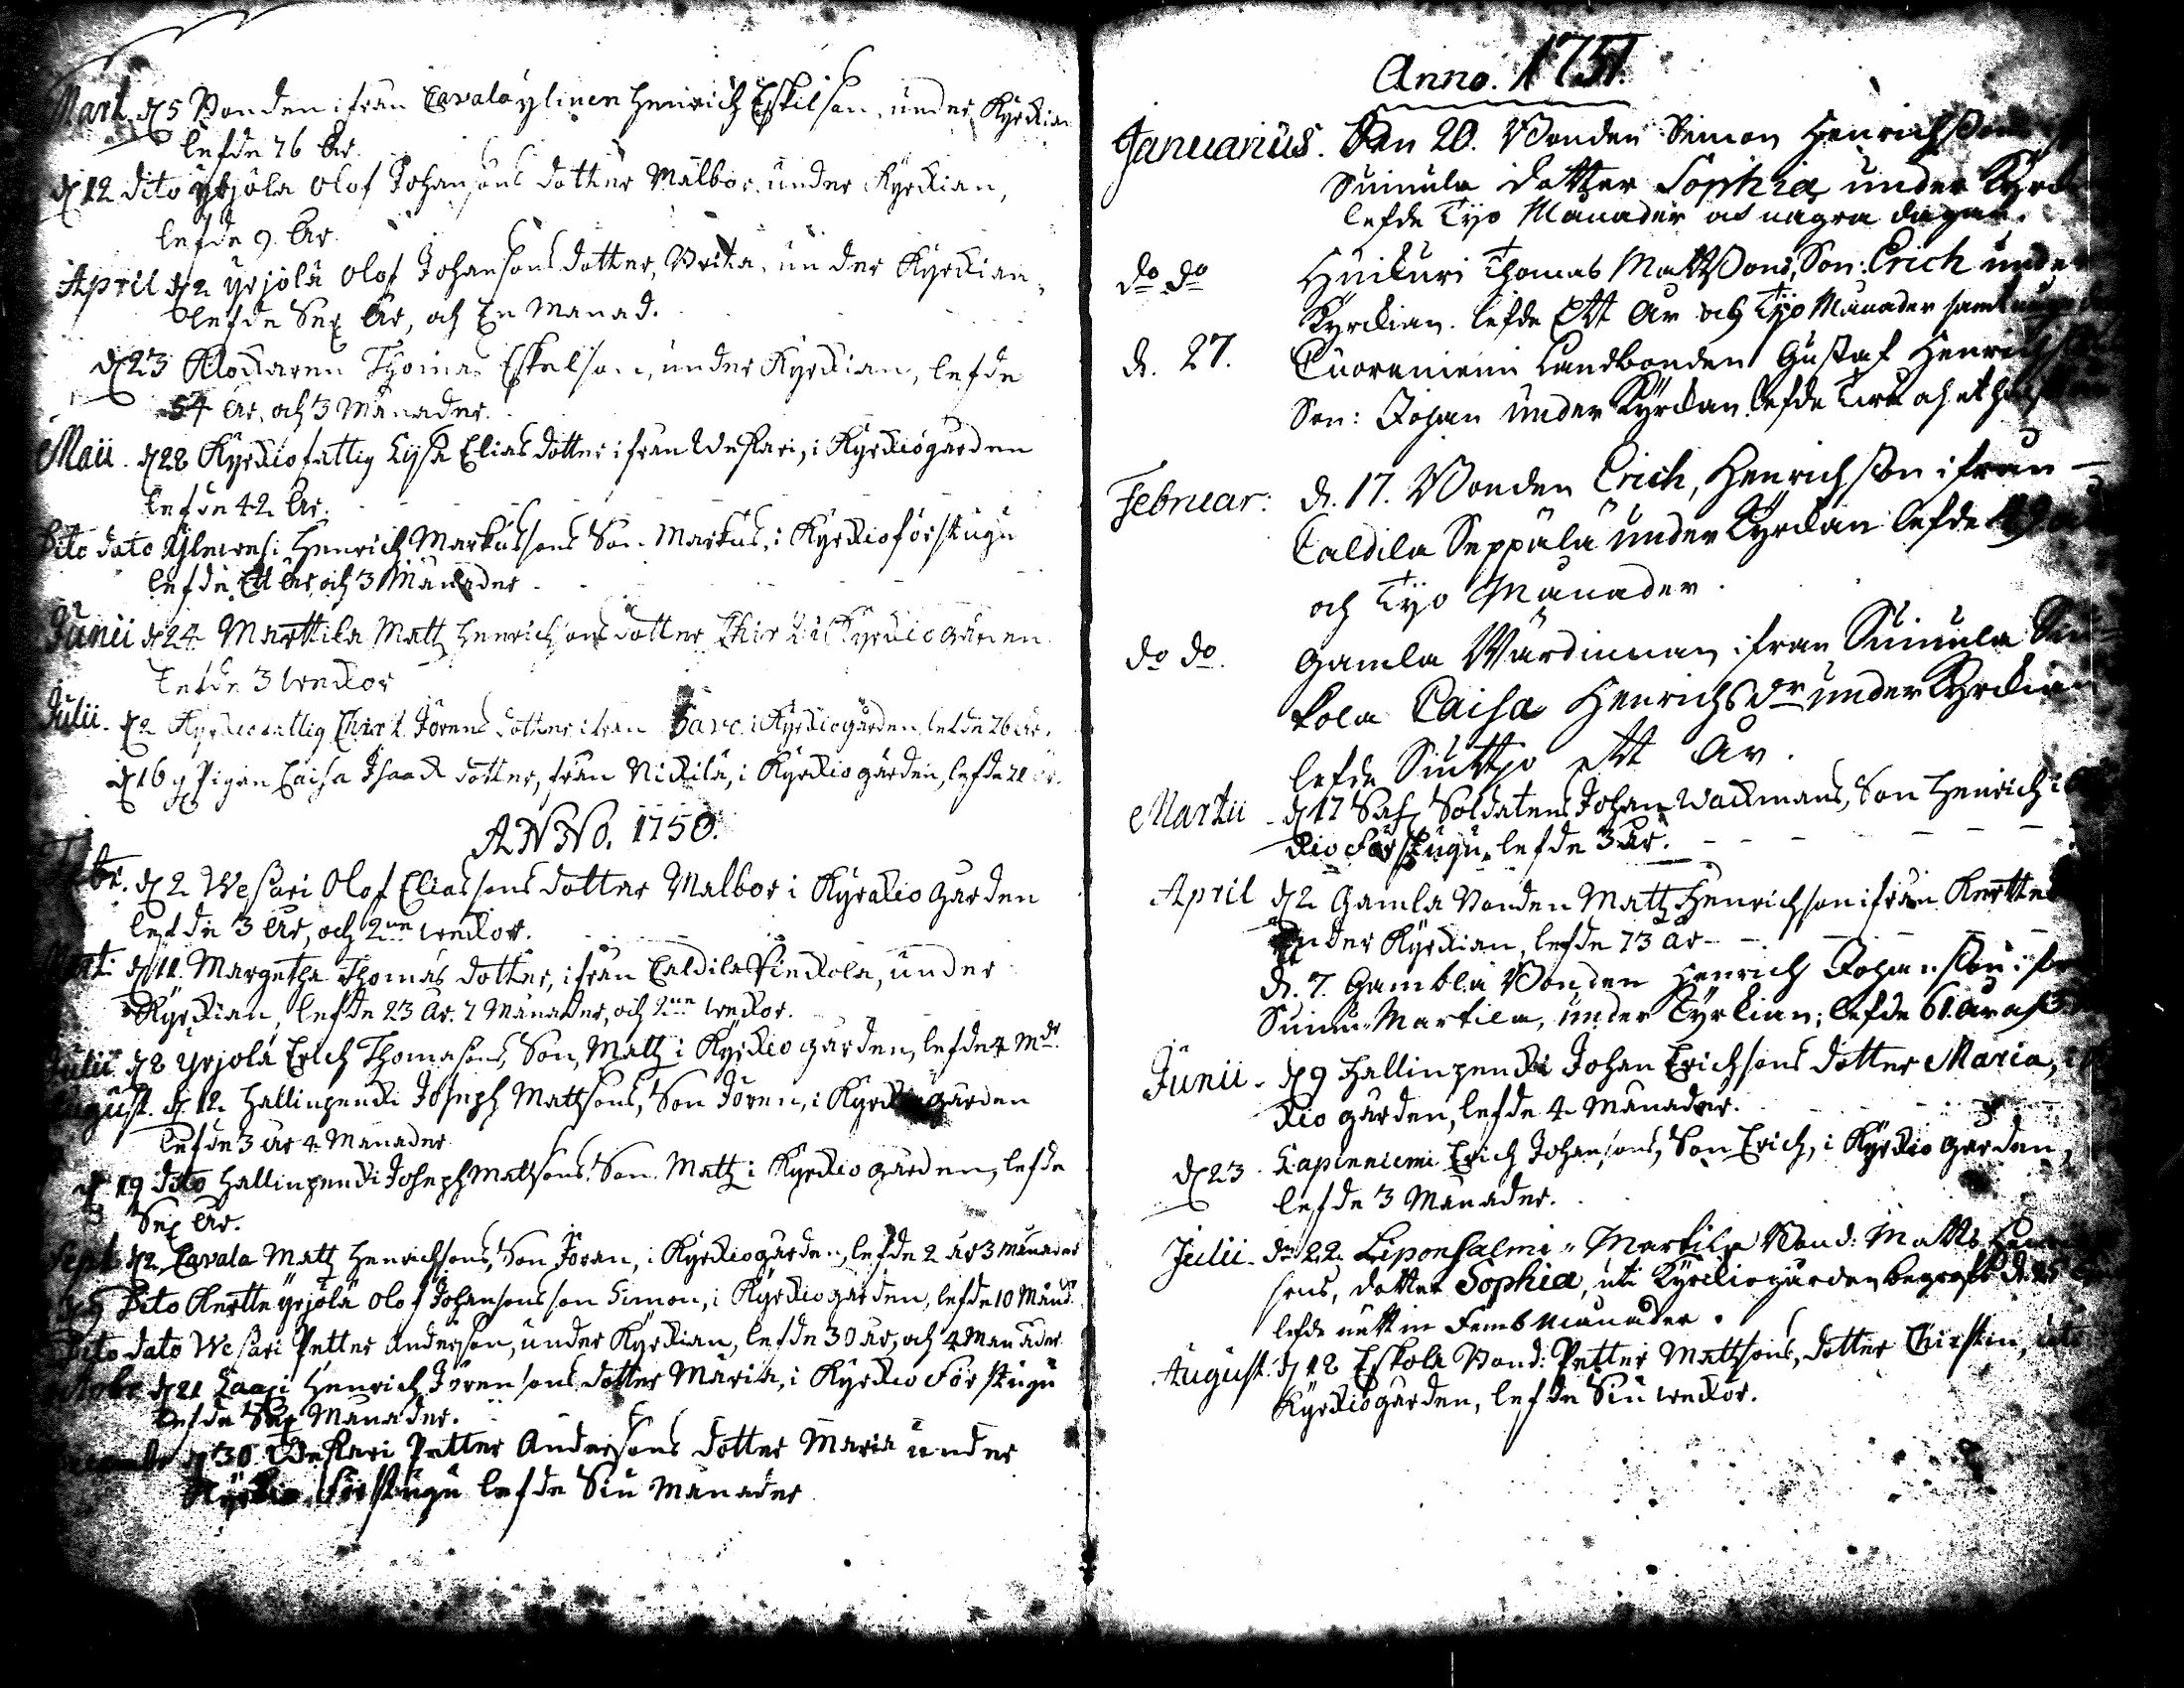 Mart. d 5 Bonden ifrån Cavaloylinen Henrich Eskilson, under Kyrkian
lefde 76 år.
d 12 dito Yrjölä Olof Johansons dotter Malbor under Kyrkian,
lefde 9 år.
April d 2 Yrjölä Olof Johansons dotter, Brita, under Kyrkian,
lefde Sex år, och En Månad.
d 23 Klockaren Thomas Eskelson, under Kyrkian, lefde
54 år, och 3 Månader.
Maii. d 28 Kyrkiofattig Lysa Elias dotter ifrån Weßari, i Kyrkiogården
lefde 42 år.
Dito dato Henrich Markussons Son Markus, i Kyrkioförstugu
lefde Ett år, och 3 Månader
Junii d 24 Marttila Matz Henrichsons dotter i Kyrkiogården
lefde 3 weckor
Julii. d 2 Kyrkiofattig Jörens dotter ifrån i Kyrkiogården lefde 76 år.
d 16 Pigan Caisa Isaak dotter, från Nickilä, i Kyrkiogården, lefde 21 år.
ANNO. 1750.
d 2 Weßari Olof Eliassons dotter Malbor i Kyrkiogården
lefde 3 år, och 2ne weckor.
d 11. Margetha Thomas dotter, ifrån Caldila Pieckola, under
Kyrkian, lefde 23 år. 7 Månader, och 2ne weckor.
Julii d 8 Yrjölä Erich Thomasons, Son, Matz i Kyrkiogården, lefde 4 Mdr.
August. d 12 Hallinpencki Joseph Mattsons, Son Jören, i Kyrkiogården
lefde 3 år 4 Månader
d 19 Dito Hallinpencki Joseph Matsons Son Matz i Kyrkiogården, lefde
Sex år.
Sept. d 2. Cavala Matz Henrichsons, Son Jöran, i Kyrkiogården, lefde 2 år 3 Månader
Dito Kertte Yrjölä Olof Johansons son Simon, i Kyrkiogården, lefde 10 Månad.
Dito dato Weßari Petter Anderson, under Kyrkian, lefde 30 år, och 4 Månader
d 21 Henrich Jörensons dotter Maria, i Kyrkio Förstugu
lefde Sex Månader.
d 30 Weßari Petter Andersons dotter Maria under
Kyrkio Förstugu lefde Siu Månader
Anno. 1751.
Januarius. Den 20. Bonden Simon Henrichßons
Suimula dotter Sophia under Kyrk
lefde Tyo Månader och några dagar.
do do Huikuri Thomas Mattßons, Son: Erich under
Kyrckian. lefde Ett År och Tyo Månader samt
d. 27. Cuoreniemi Landbonden Gustaf Henrich
Son: Johan under Kyrckan lefde
Februar: d. 17. Bonden Erich, Henrichßon ifrån
Caldila Seppälä under Kyrckan lefde
och Tyo Månader.
do do. Gamla Wärdinnan ifrån Suimula
kola Caisa Henrichsdr under Kyrckian
lefde Siuttyo ett År.
Martii d 17 Soldatens Johan Wackmans, Son Henrich i
kio Förstugu, lefde 3 år.
April d 2 Gamla Bonden Matz Henrichson ifrån Kertte
under Kyrkian, lefde 73 år
d. 7. Gambla Bonden Henrich Johanßon
Suimu Martila, under Kyrkian; lefde 61. år
Junii. d 9 Hallinpencki Johan Erichsons dotter Maria,
kiogården, lefde 4 Månader.
d 23 Lapinniemi Erich Johansons, Son Erich, i Kyrkiogården,
lefde 3 Månader.
Julii. dn 22. Liponsalmi Martila Bond: Matts
sons, dotter Sophia, uti Kyrckiogården begrafs
lefde Femb Månader.
August. d 18 Eskola Bond: Petter Matzsons, dotter Chirstin, uti
Kyrkiogården, lefde Siu weckor.